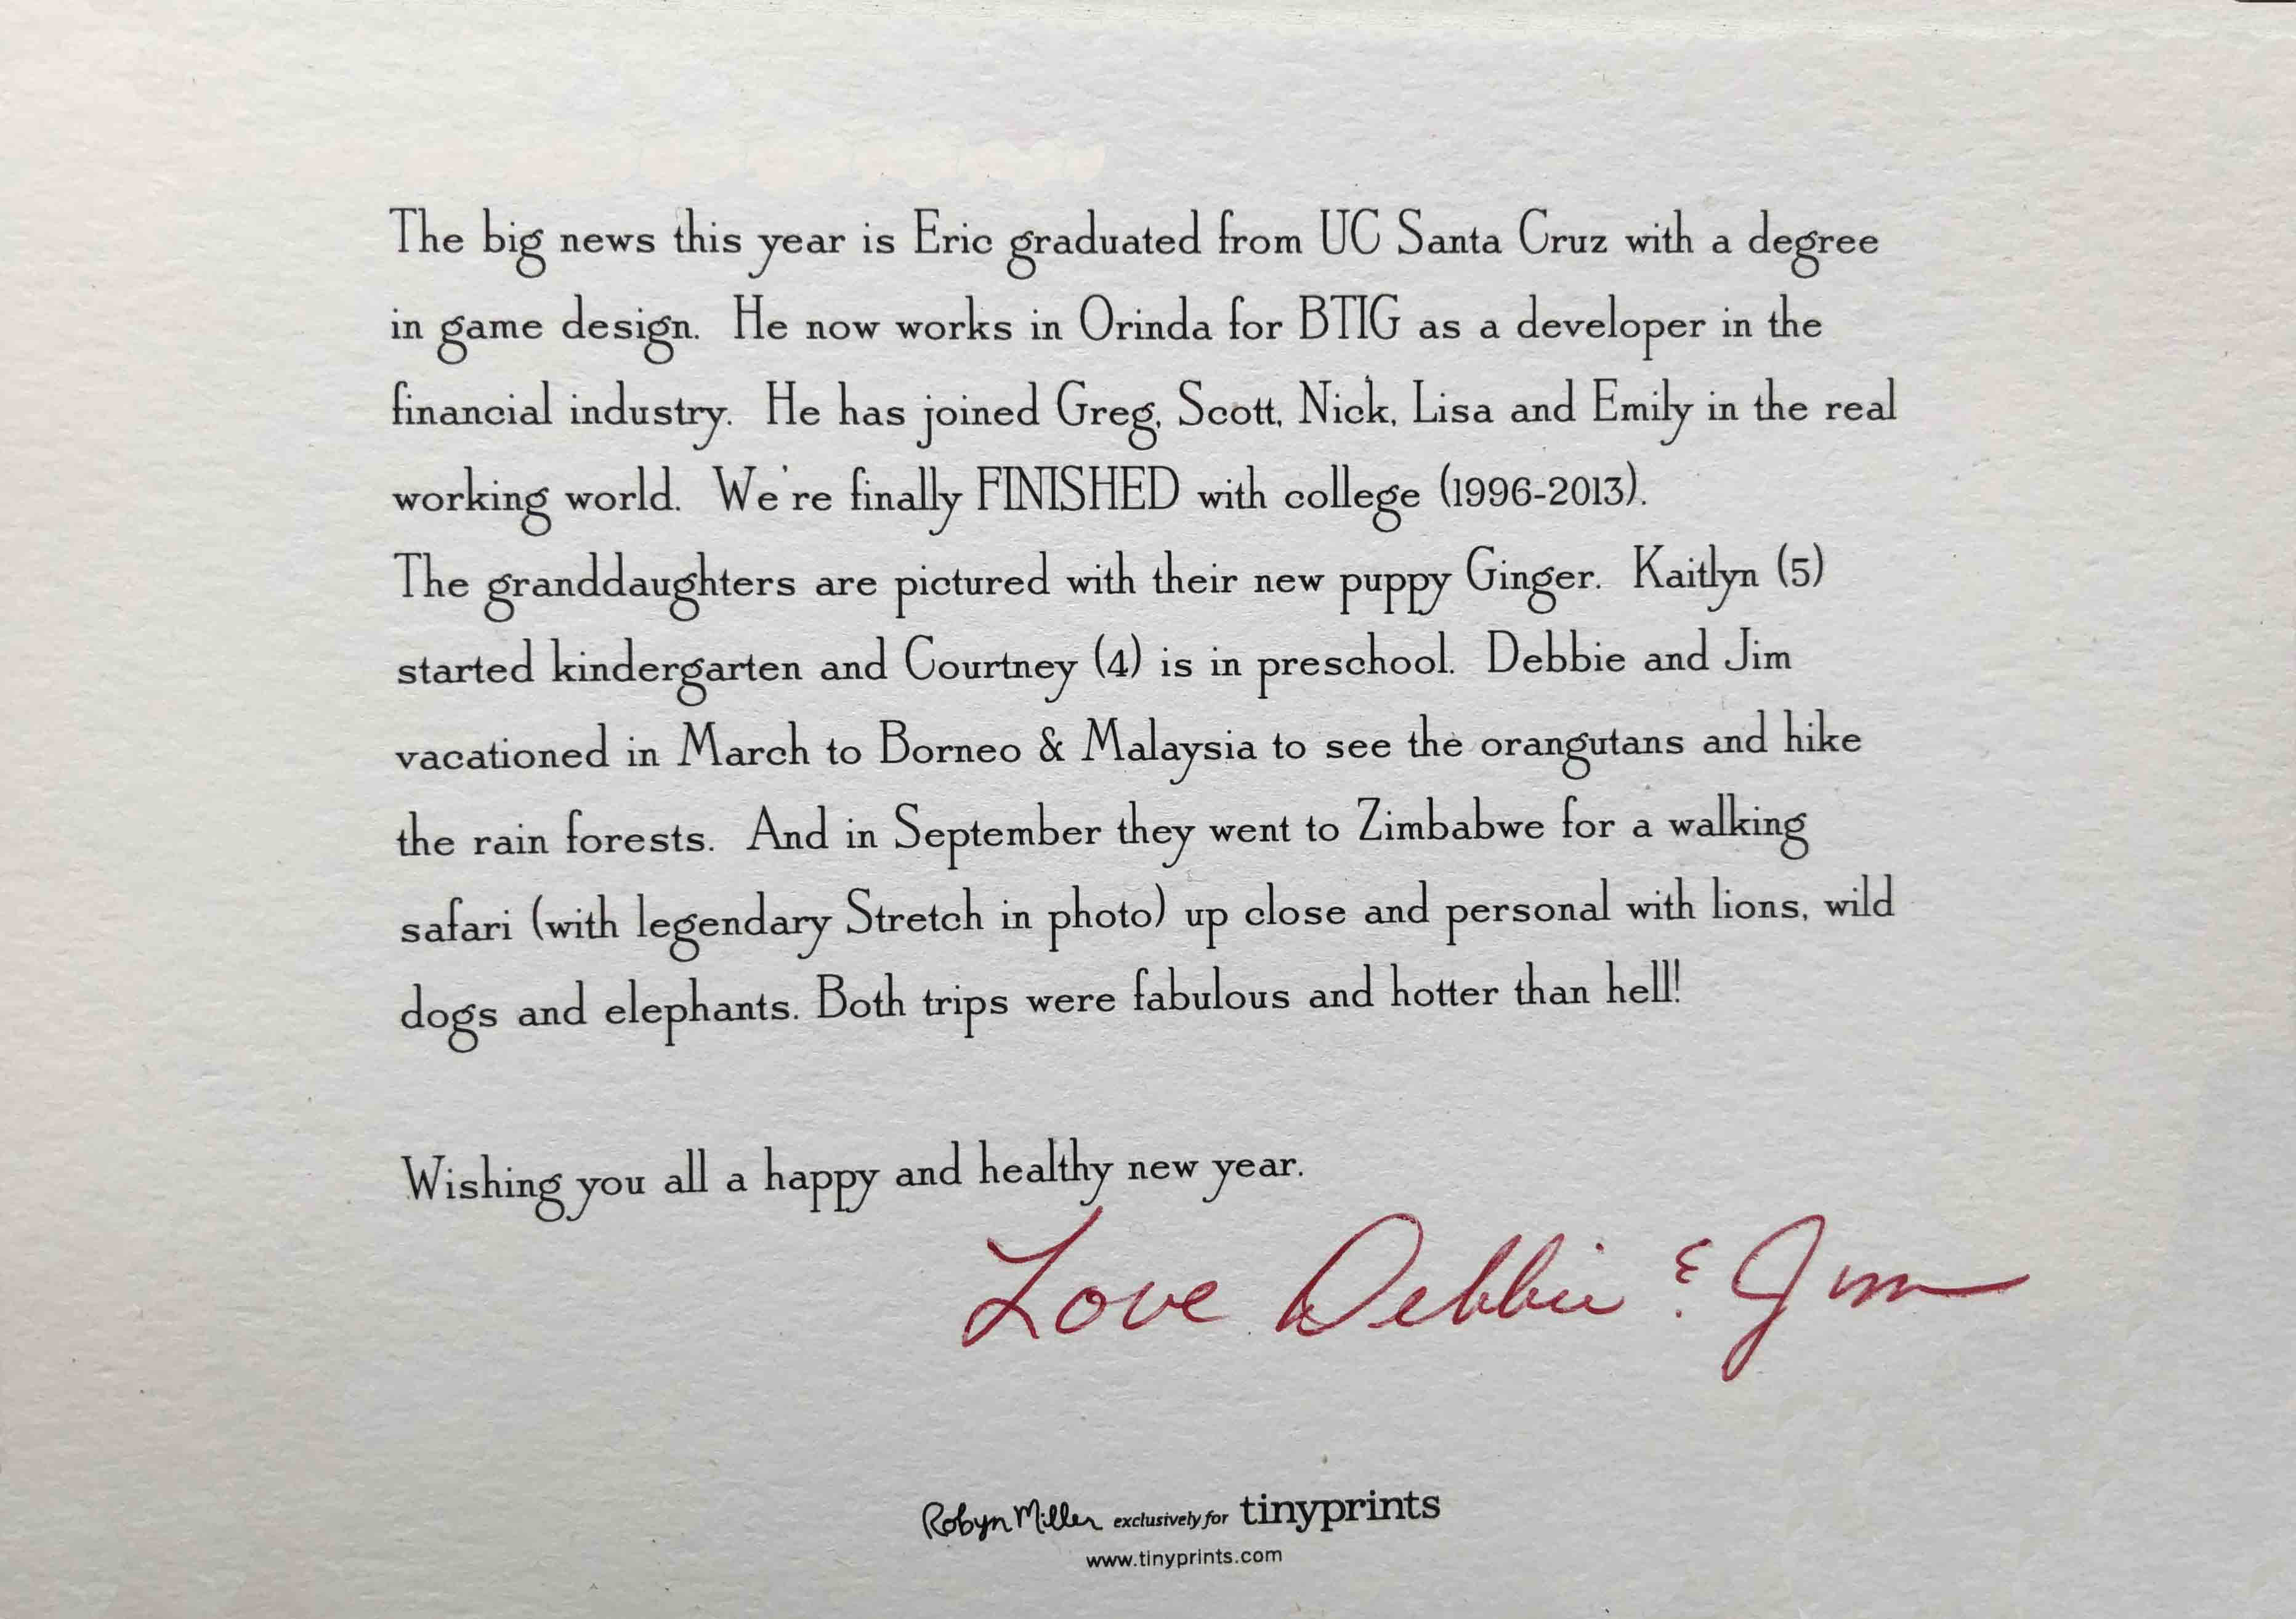 The big news this year is Eric graduated from UC Santa Cruz with a degree
in game design. He now works in Orinda for BTIG as a developer in the
financial industry. He has joined Greg, Scott, Nick, Lisa and Emily in the real
working world. We're finally FINISHED with college (1996-2013).
The granddaughters are pictured with their new puppy Ginger. Kaitlyn (5)
started kindergarten and Courtney (4) is in preschool. Debbie and Jim
vacationed in March to Borneo & Malaysia to see the orangutans and hike
the rain forests. And in September they went to Zimbabwe for a walking
safari (with legendary Stretch in photo) up close and personal with lions, wild
dogs and elephants. Both trips were fabulous and hotter than hell!
Wishing you all a happy and healthy new year.
Love Debbie & Jim
Robyn Miller exclusively for tinyprints
www.tinyprints.com